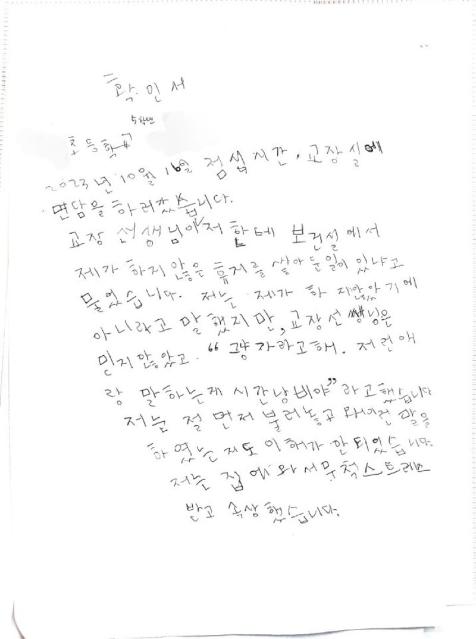 확인서
5학년
초등학교
2023년 10월 16일 점심시간, 교장실에
면담을 하러갔습니다.
교장 선생님이 저 한테 보건실에서
제가 하지 않은 휴지를 쌓아둔일이 있냐고
물었습니다. 저는 제가 하지않았기에
아니라고 말했지만, 교장선생님은
믿지않았고. "그냥 가라고해. 저런애
랑 말하는게 시간낭비야"라고했습니다
저는 절 먼저 불러놓고 왜이런 말을
하였는지도 이해가 안되었습니다.
저는 집에와서 무척스트레스
받고 속상했습니다.